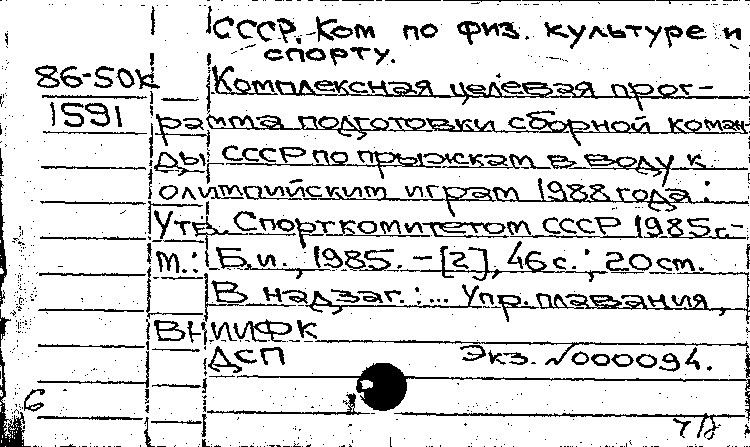 СССР. Ком по физ. культуре и
спорту.
86-50к Комплексная целевая прог-
1591 рамма подготовки сборной коман-
ды СССР по прыжкам в воду к
олимпийским играм 1988 года:
Утв. Спорткомитетом СССР 1985г.-
м.: Б.и., 1985. - [2], 46 с.; 20 см.
В надзаг.: ... Упр. плавания,
ВНИИФК
ДСП Экз. №000094.
6